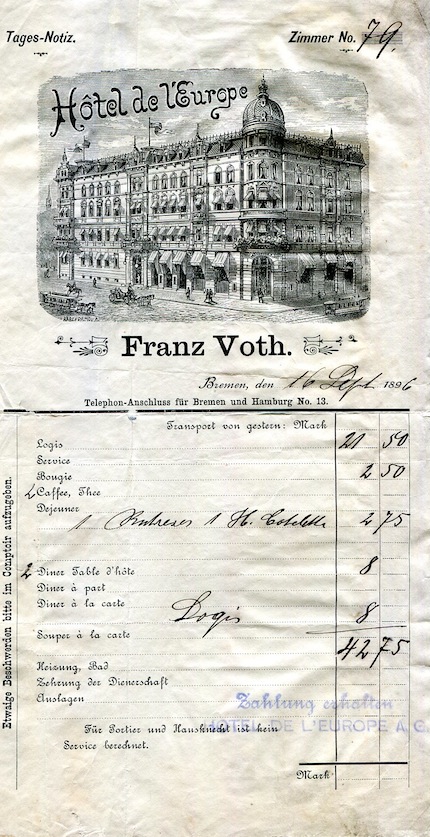 Tages-Notiz.
Zimmer No. 79.
Hôtel de l'Europe
Franz Voth.
Bremen, den 16 Sept 1896
Telephon-Anschluss für Bremen und Hamburg No. 13.
Transport von gestern: Mark 21 50
Logis
Service
Bougie 2 50
2 Caffee, Thee
Dejeuner
1 1 H. Cotelette 2 75
2 Diner Table d'hôte 8
Diner à part
Diner à la carte
Logis 8
Souper à la carte
42 75
Heizung, Bad
Zehrung der Dienerschaft
Auslagen
Zahlung erhalten
HOTEL DE L'EUROPE A.G.
Für Portier und Hausknecht ist kein
Service berechnet.
Mark
Etwaige Beschwerden bitte im Comptoir aufzugeben.